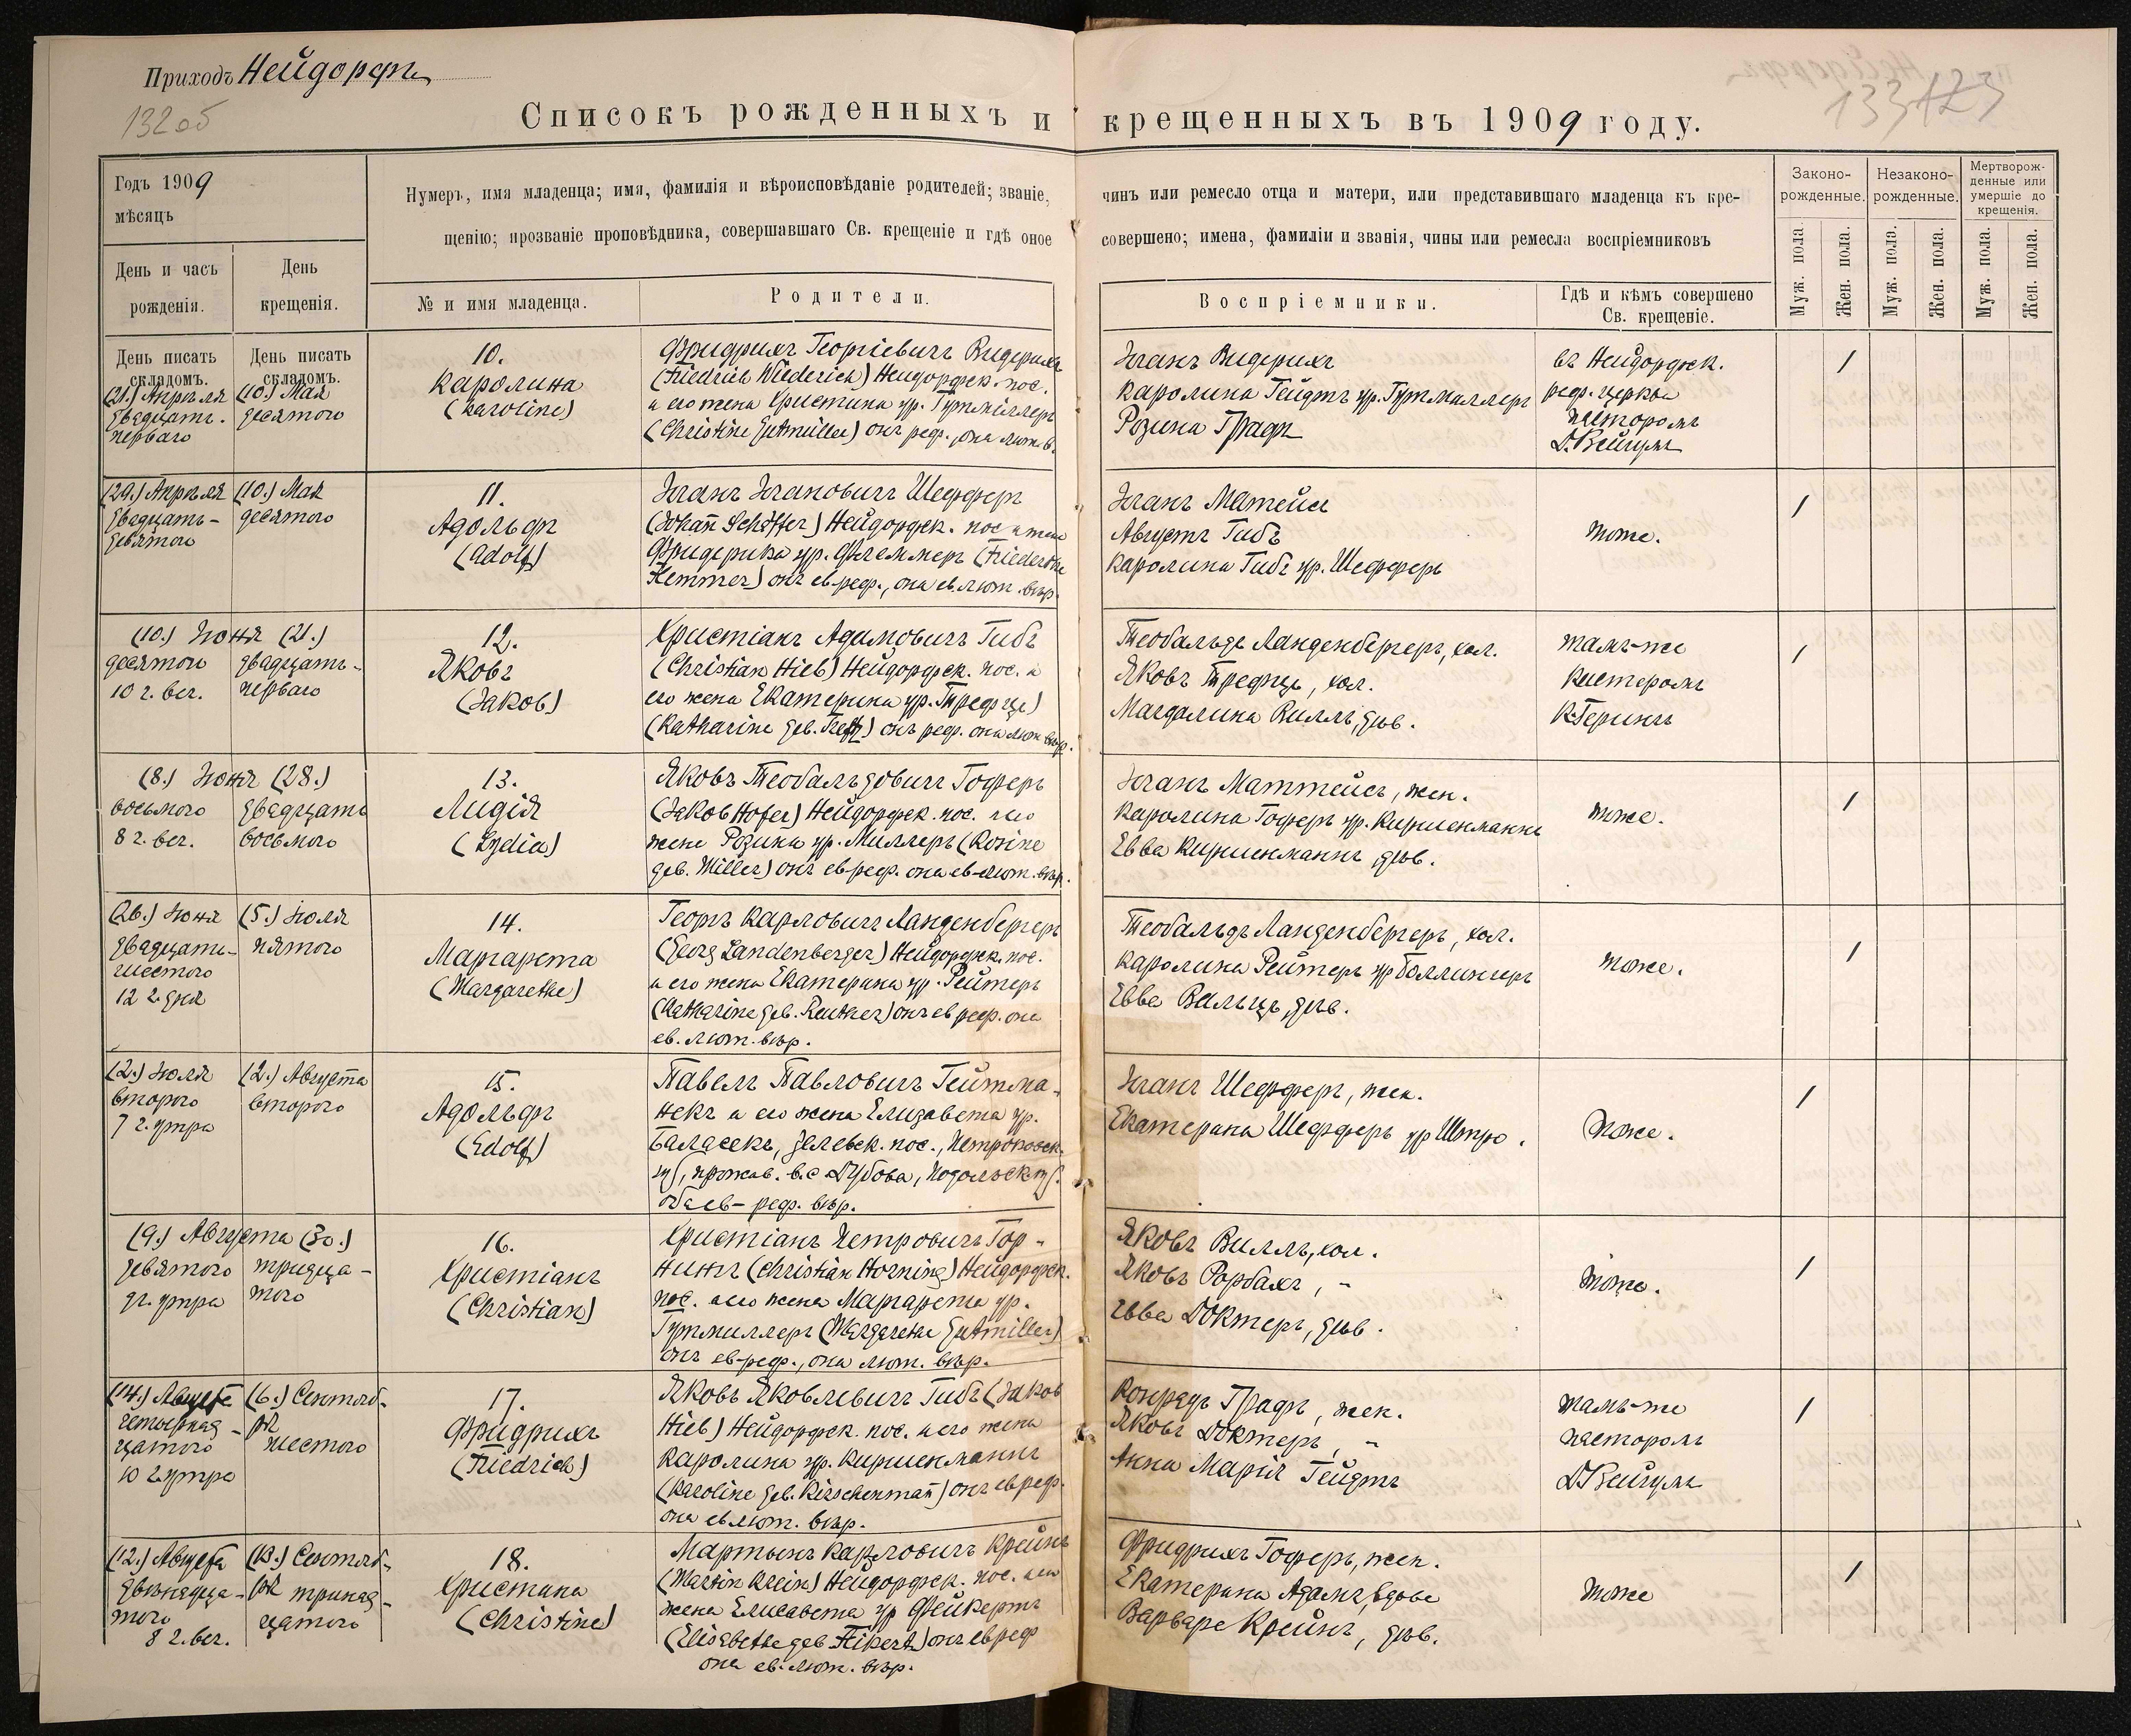 Приходъ Нейдорфъ
132об
133 123
Списокъ рожденныхъ и крещенныхъ въ 1909 году.
Годъ 1909
мѣсяцъ
День и часъ
рожденія.
День
крещенія.
Нумеръ, имя младенца; имя, фамилія и вѣроисповѣданіе родителей; званіе, чинъ или ремесло отца и матери, или представившаго младенца къ кре-
щенію; прозваніе проповѣдника, совершавшаго Св. крещеніе и гдѣ оное совершено; имена, фамиліи и званія, чины или ремесла воспріемниковъ
№ и имя младенца.
Родители.
Воспріемники.
Гдѣ и кѣмъ совершено
Св. крещеніе.
Законо-
рожденные.
Незаконо-
рожденные.
Мертворож-
денные или
умершіе до
крещенія.
Муж. пола.
Жен. пола.
Муж. пола.
Жен. пола.
Муж. пола.
Жен. пола.
День писать
складомъ.
День писать
складомъ.
(21.) Апрѣля
двадцать-
перваго
(10.) Мая
десятого
10.
Каролина
(Karoline)
Фридрихъ Георгіевичъ Видерихъ
(Friedrich Wiederich) Нейдорфск. пос.
и его жена Христина ур. Гутмиллеръ
(Christine Gutmüller) онъ реф., она лют. в.
Іоганъ Видерихъ
Каролина Гейдтъ ур. Гутмиллеръ
Розина Графъ
въ Нейдорфск.
реф. церкви
пасторомъ
Д. Вейгумъ
1
(29.) Апрѣля
двадцать-
девятого
(10.) Мая
десятого
11.
Адольфъ
(Adolf)
Іоганъ Іогановичъ Шефферъ
(Johan̄ Schäffer) Нейдорфск. пос и жена
Фридерика ур. Флеммеръ (Friederike
Flemmer) онъ ев. реф., она ев. лют. вѣр.
Іоганъ Матейсъ
Августъ Гибъ
Каролина Гибъ ур. Шефферъ
тоже.
1
(10.) Іюня (21.)
десятого
10 ч. веч.
двадцать-
перваго
12.
Яковъ
(Jakob)
Христіанъ Адамовичъ Гибъ
(Christian Hieb) Нейдорфск. пос. и
его жена Екатерина ур. Трефцъ)
(Katharine geb. Trefz) онъ реф. она лют вѣр.
Теобальдъ Ланденбергеръ, хол.
Яковъ Трефцъ, хол.
Магдалина Вилль, дѣв.
тамъ-же
кистеромъ
К. Герингъ
1
(8.) Іюня (28.)
восьмого
8 ч. веч.
двадцать
восьмого
13.
Лидія
(Lydia)
Яковъ Теобальдовичъ Гоферъ
(Jakob Hofer) Нейдорфск. пос. и его
жена Розина ур. Миллеръ (Rosine
geb. Miller) онъ ев-реф. она ев-лют. вѣр.
Іоганъ Маттейсъ, жен.
Каролина Гоферъ ур. Киршенманнъ
Евва Киршенманнъ, дѣв.
тоже.
1
(26.) Іюня
двадцать-
шестого
12 ч. дня
(5.) Іюля
пятого
14.
Маргарета
(Margarethe)
Георгъ Карловичъ Ланденбергеръ
(Georg Landenberger) Нейдорфск. пос.
и его жена Екатерина ур. Рейтеръ
(Katharine geb. Reuther) онъ ев реф. она
ев. лют. вѣр.
Теобальдъ Ланденбергеръ, хол.
Каролина Рейтеръ ур Боллингеръ
Евва Вальцъ, дѣв.
тоже.
1
(2.) Іюля
второго
7 ч. утра
(2.) Августа
второго
15.
Адольфъ
(Edolf)
Павелъ Павловичъ Гейтма-
некъ и его жена Елизавета ур.
Баласекъ, Зелевск. пос., Петроковск.
губ, прожив. в. с Дубова, Подольск губ.
оба ев-реф. вѣр.
Іоганъ Шефферъ, жен.
Екатерина Шефферъ ур Штро.
Тоже.
1
(9.) Августа (30.)
девятого
9 ч. утра
тридца-
того
16.
Христіанъ
(Christian)
Христіанъ Петровичъ Гор-
нингъ (Christian Horning) Нейдорфск.
пос. и его жена Маргарета ур.
Гутмиллеръ (Margarethe Gutmiller)
онъ ев-реф., она лют. вѣр.
Яковъ Вилль, хол.
Яковъ Рорбахъ, -
Евва Доктеръ, дѣв.
тоже.
1
(14.) Августа
четырнад-
цатого
10 ч. утра
(6.) Сентяб-
ря
шестого
17.
Фридрихъ
(Friedrich)
Яковъ Яковлевичъ Гибъ (Jakob
Hieb) Нейдорфск. пос. и его жена
Каролина ур. Киршенманнъ
(Karoline geb. Kirschenman̄) онъ ев реф.
она ев лют. вѣр.
Конрадъ Графъ, жен.
Яковъ Доктеръ, -
Анна Марія Гейдтъ
тамъ-же
пасторомъ
Д. Вейгумъ
1
(12.) Августа
двѣнадца-
того
8 ч. веч.
(13.) Сентяб-
ря тринад-
цатого
18.
Христина
(Christine)
Мартынъ Карловичъ Крейнъ
(Martin Krein) Нейдорфск. пос. и его
жена Елисавета ур Фейкертъ
(Elisabethe geb. Feikert) онъ ев реф
она ев. лют. вѣр.
Фридрихъ Гоферъ, жен.
Екатерина Адамъ, вдова
Варвара Крейнъ, дѣв.
тоже
1